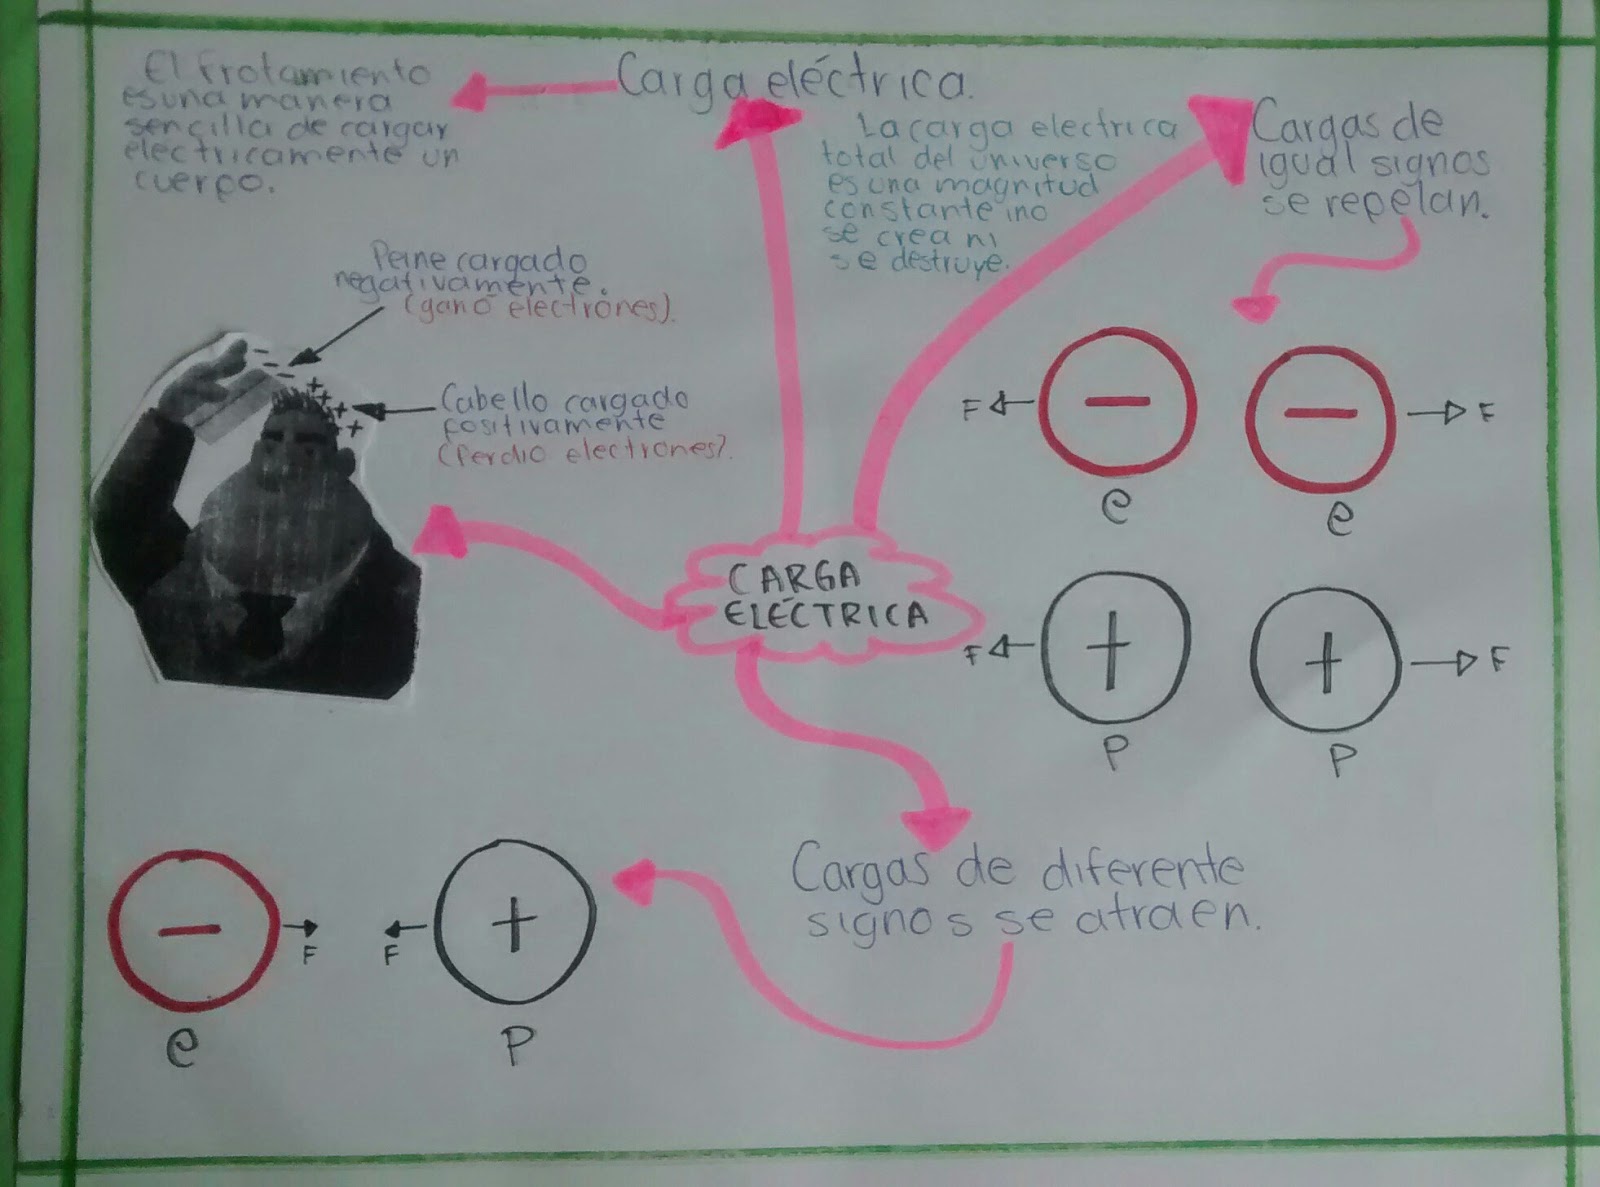 El frotamiento
es una manera
sencilla de cargar
electricamente un
cuerpo.
Carga eléctrica.
La carga electrica
total del universo
es una magnitud
constante no
se crea ni
se destruye.
Cargas de
igual signos
se repelan.
Peine cargado
negativamente.
(gano electrones).
Cabello cargado
positivamente
(Perdio electrones).
- -
- -
+ +
+ +
F
−
−
F
e
e
CARGA
ELÉCTRICA
F
+
+
F
P
P
Cargas de diferente
signos se atraen.
−
F
F
+
e
P